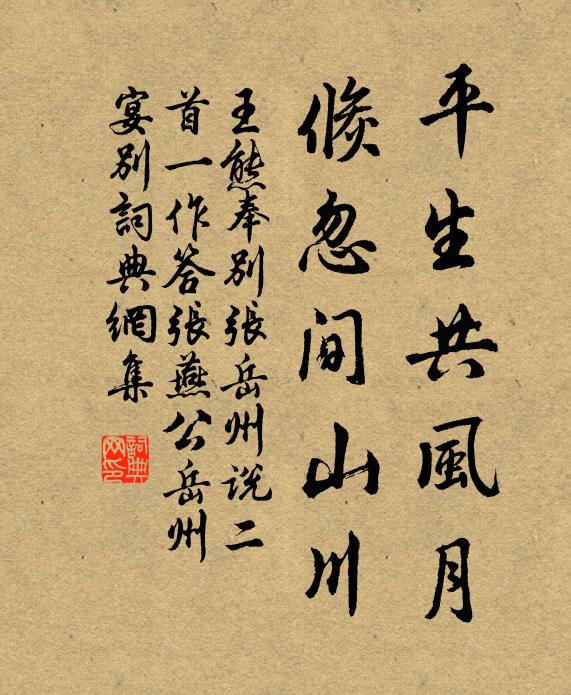 平生共風月
倏忽間山川
王熊奉別張岳州說二
首一作答張燕公岳州
宴別詞典網集
詞典
网印